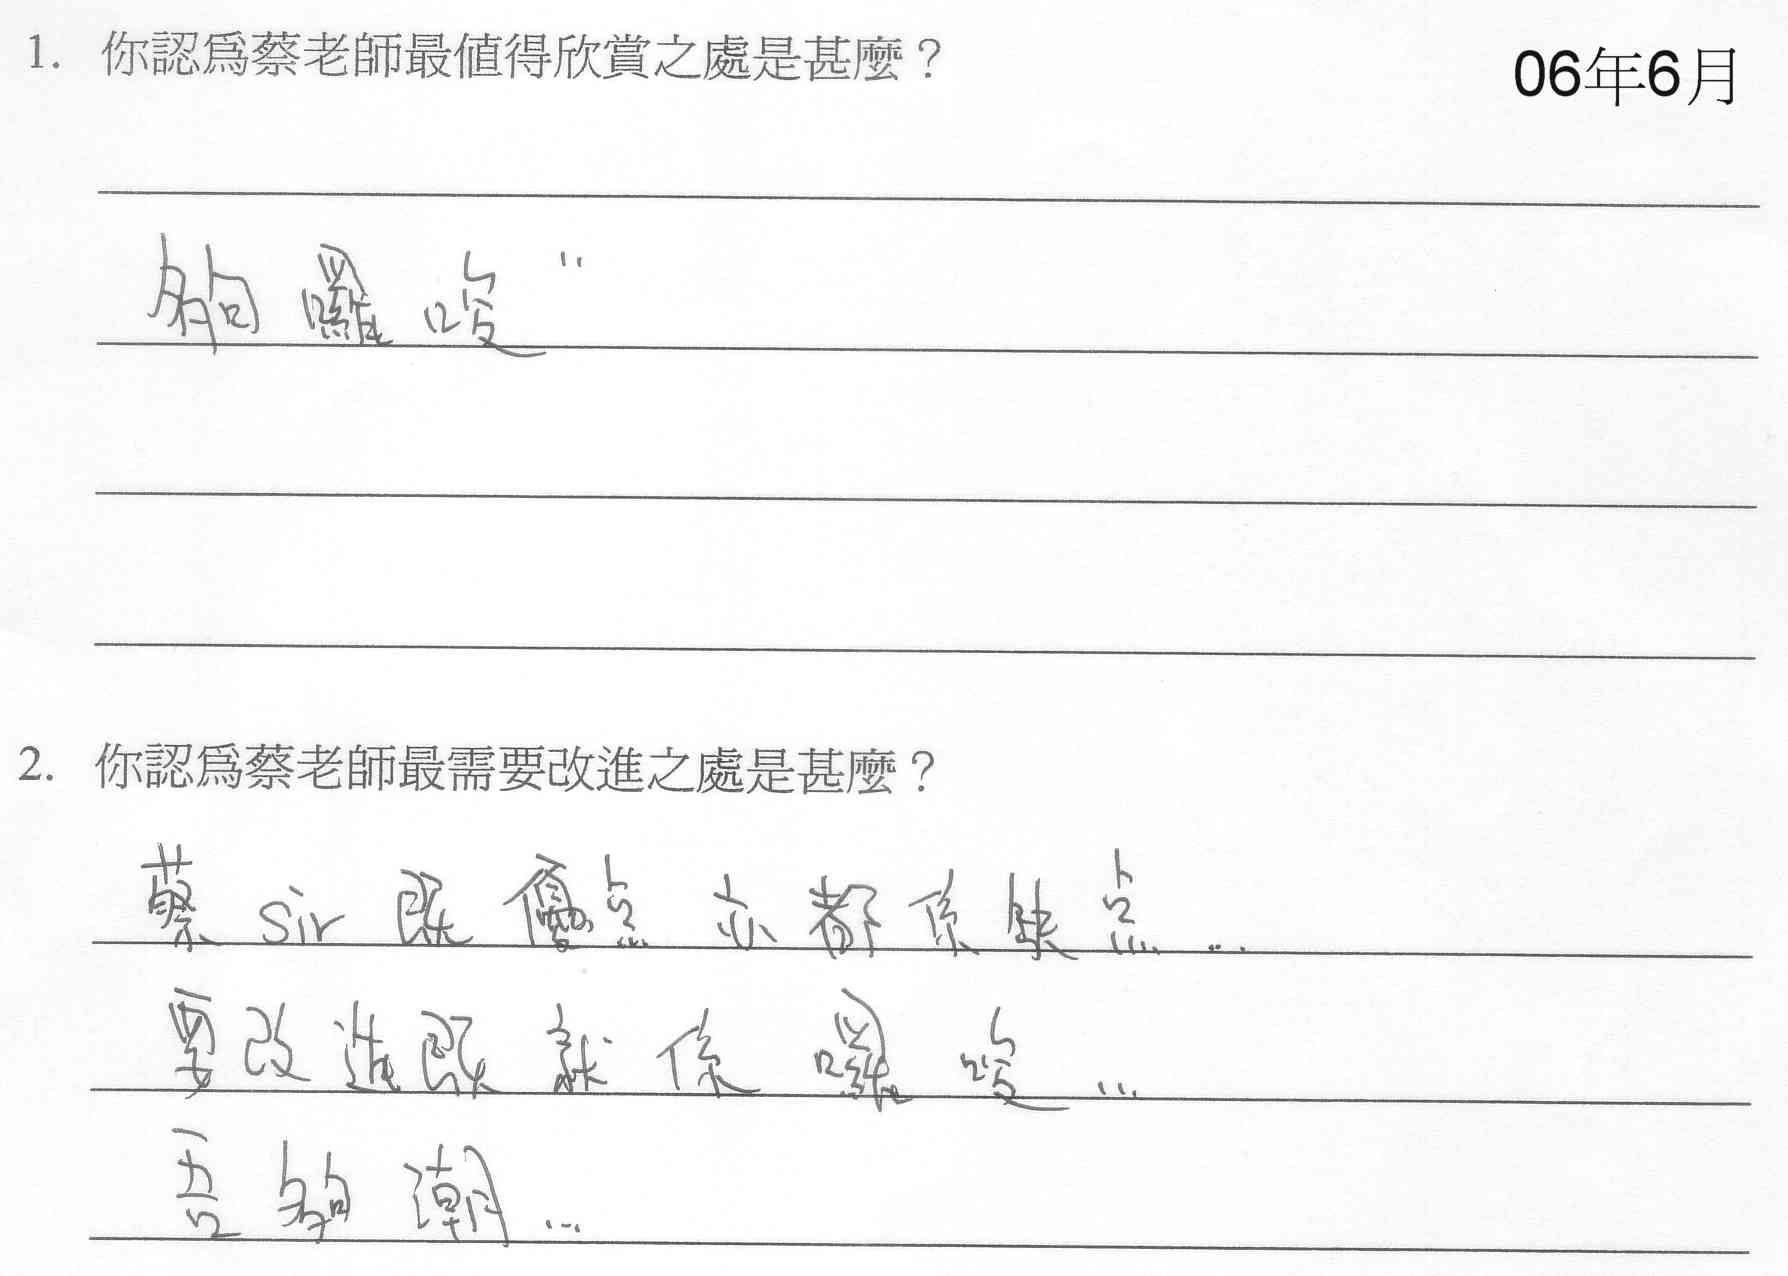 1. 你認爲蔡老師最值得欣賞之處是甚麼？
06年6月
夠囉唆"
2. 你認爲蔡老師最需要改進之處是甚麼？
蔡 sir 既優点亦都係缺点...
要改進既就係囉唆...
吾夠潮...